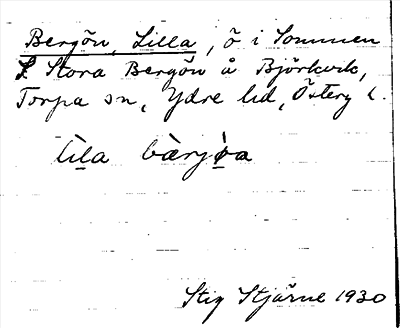 Bergön, Lilla, ö i Sommen
L Stora Bergön å Björkvik,
Torpa sn, Ydre hd, Österg l.
lìla bàrjøa
Stig Stjärne 1930